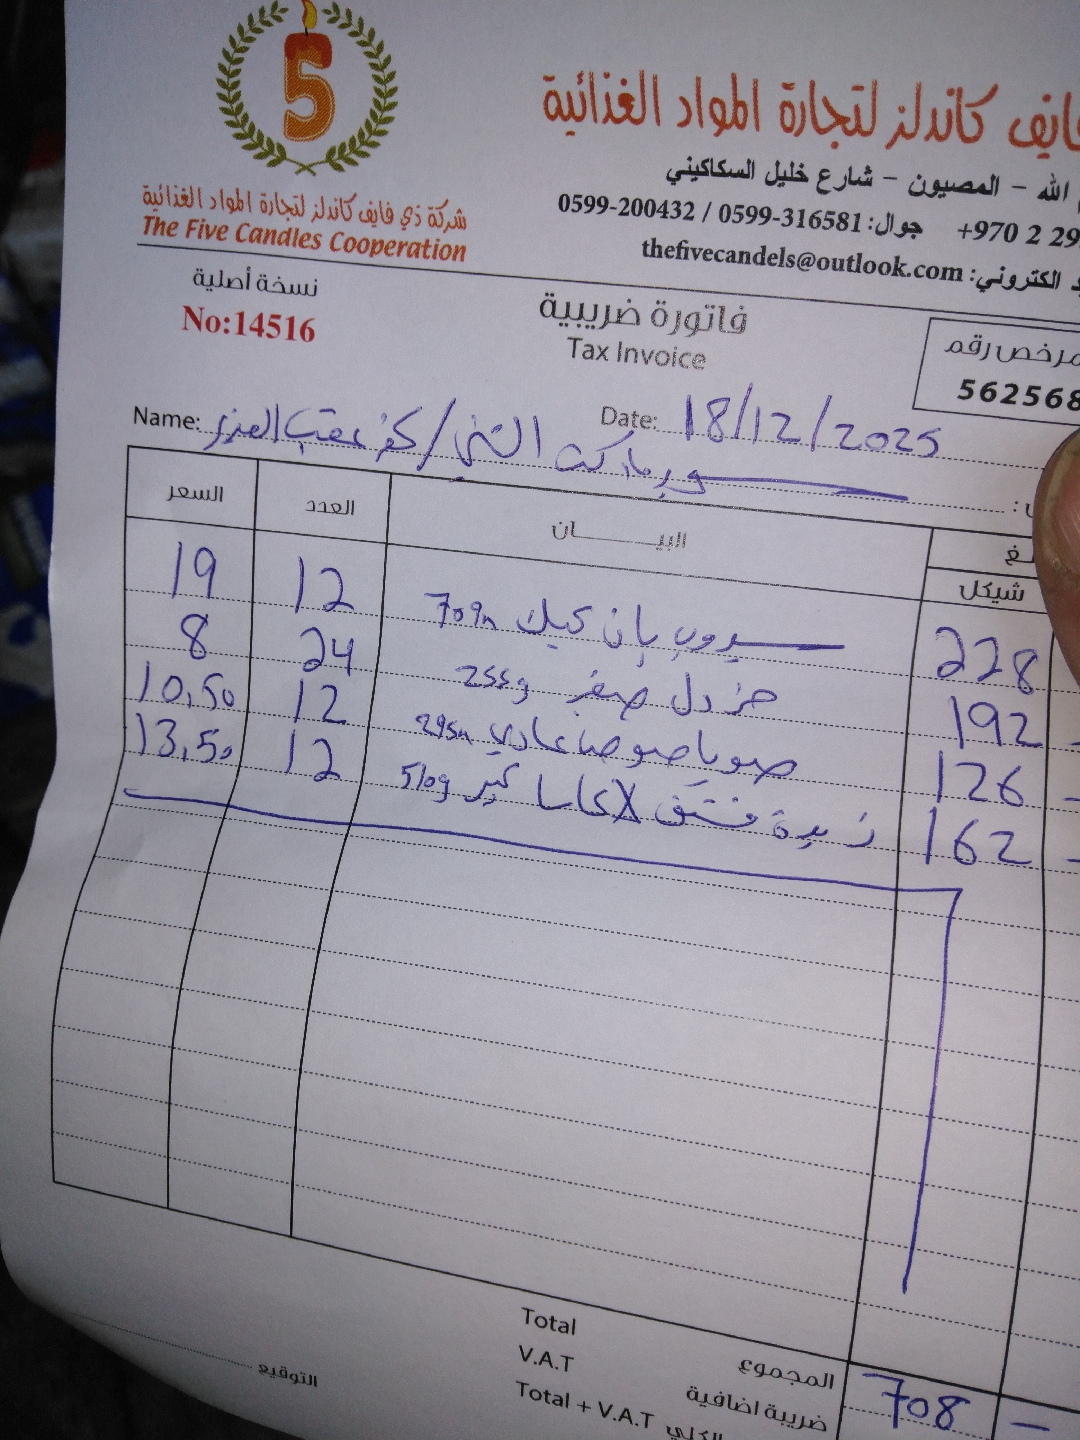 5
فايف كاندلز لتجارة المواد الغذائية
الله - المصيون - شارع خليل السكاكيني
+970 2 29 جوال: 0599-316581 / 0599-200432
الكتروني: thefivecandels@outlook.com
شركة ذي فايف كاندلز لتجارة المواد الغذائية
The Five Candles Cooperation
نسخة أصلية
No:14516
فاتورة ضريبية
Tax Invoice
مرخص رقم
562568
Date: 18/12/2025
Name: سوبرماركت / كفر عقب
شيكل البيـــــان العدد السعر
228 سيروب بان كيك 709m 12 19
192 خردل صغير 255g 24 8
126 صويا صوص عادي 295m 12 10,50
162 زبدة فستق كبير 510g 12 13,50
Total المجموع 708 -
V.A.T ضريبة اضافية
Total + V.A.T الكلي
التوقيع